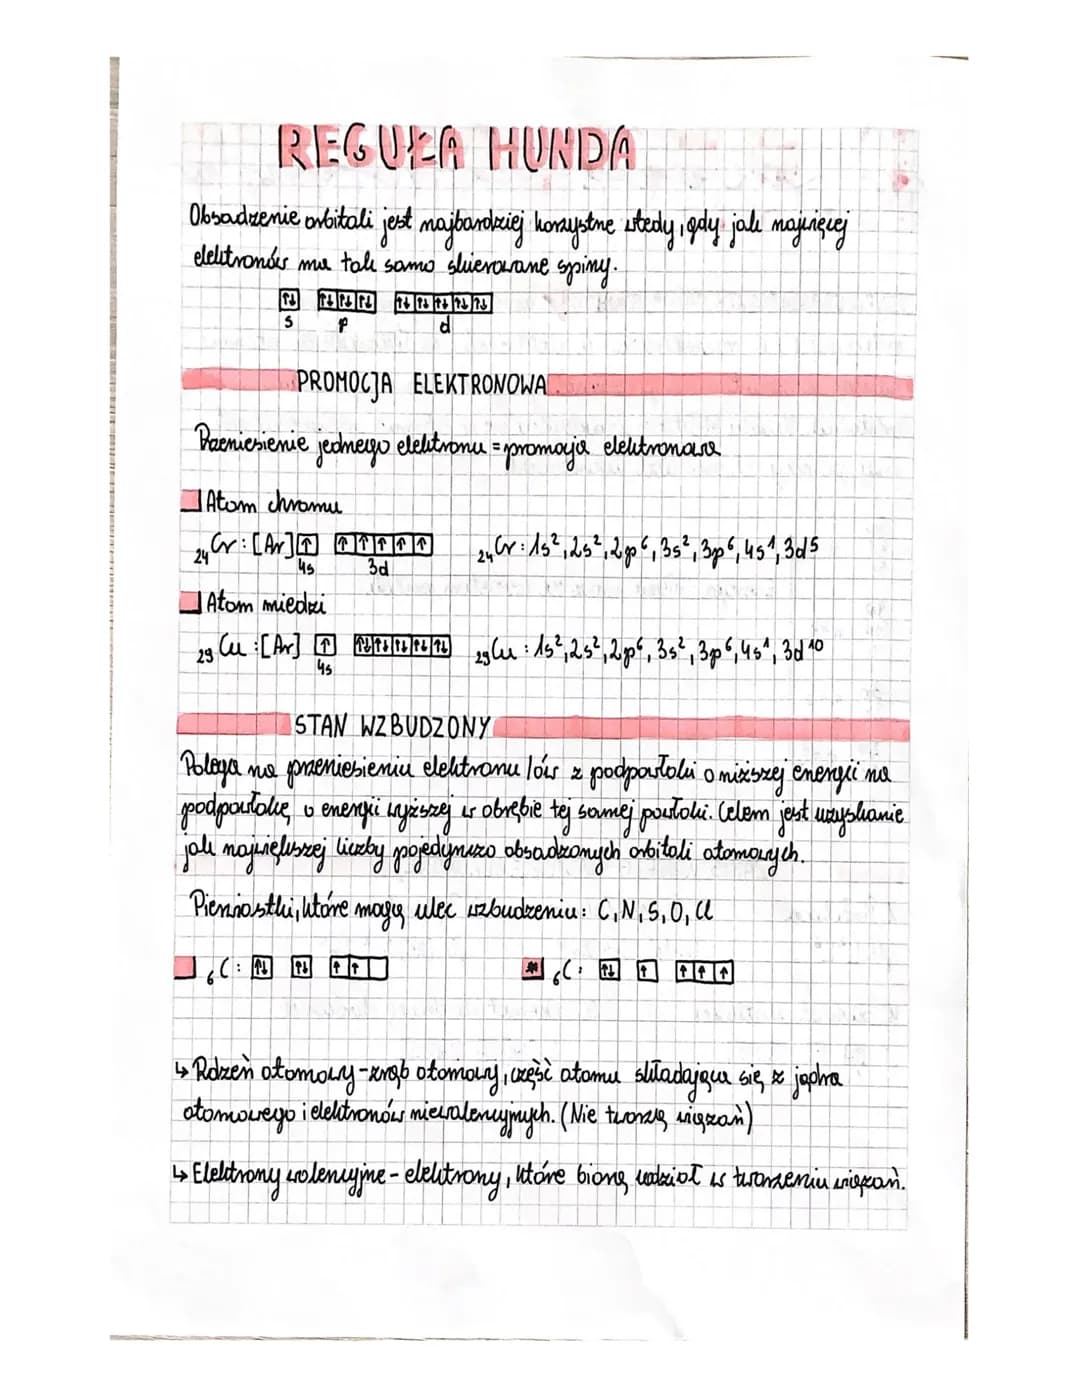 REGUŁA HUNDA
Obsadzenie orbitali jest najbardziej korzystne wtedy, gdy jak najwięcej
elektronów ma tak samo skierowane spiny.
↑↓ ↑↓ ↑↓ ↑↓ ↑↓ ↑↓ ↑↓ ↑↓ ↑↓
s p d
PROMOCJA ELEKTRONOWA
Przeniesienie jednego elektronu = promocja elektronowa
Atom chromu
₂₄Cr: [Ar] ↑ ↑ ↑ ↑ ↑ ↑ ₂₄Cr: 1s², 2s², 2p⁶, 3s², 3p⁶, 4s¹, 3d⁵
4s 3d
Atom miedzi
₂₉Cu: [Ar] ↑ ↑↓ ↑↓ ↑↓ ↑↓ ↑↓ ₂₉Cu: 1s², 2s², 2p⁶, 3s², 3p⁶, 4s¹, 3d¹⁰
4s
STAN WZBUDZONY
Polega na przeniesieniu elektronu /ów z podpowłoki o niższej energii na
podpowłokę o energii wyższej w obrębie tej samej powłoki. Celem jest uzyskanie
jak największej liczby pojedynczo obsadzonych orbitali atomowych.
Pierwiastki, które mogą ulec wzbudzeniu: C, N, S, O, Cl
₆C: ↑↓ ↑↓ ↑ ↑ ₆C: ↑↓ ↑ ↑ ↑ ↑
↳ Rdzeń atomowy - zrąb atomowy, część atomu składająca się z jądra
atomowego i elektronów niewalencyjnych. (Nie tworzą wiązań)
↳ Elektrony walencyjne - elektrony, które biorą udział w tworzeniu wiązań.